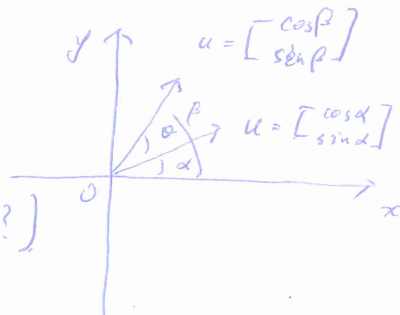 y
u = [ cosβ
sinβ ]
θ β
u = [ cosα
sinα ]
α
O
? ]
x